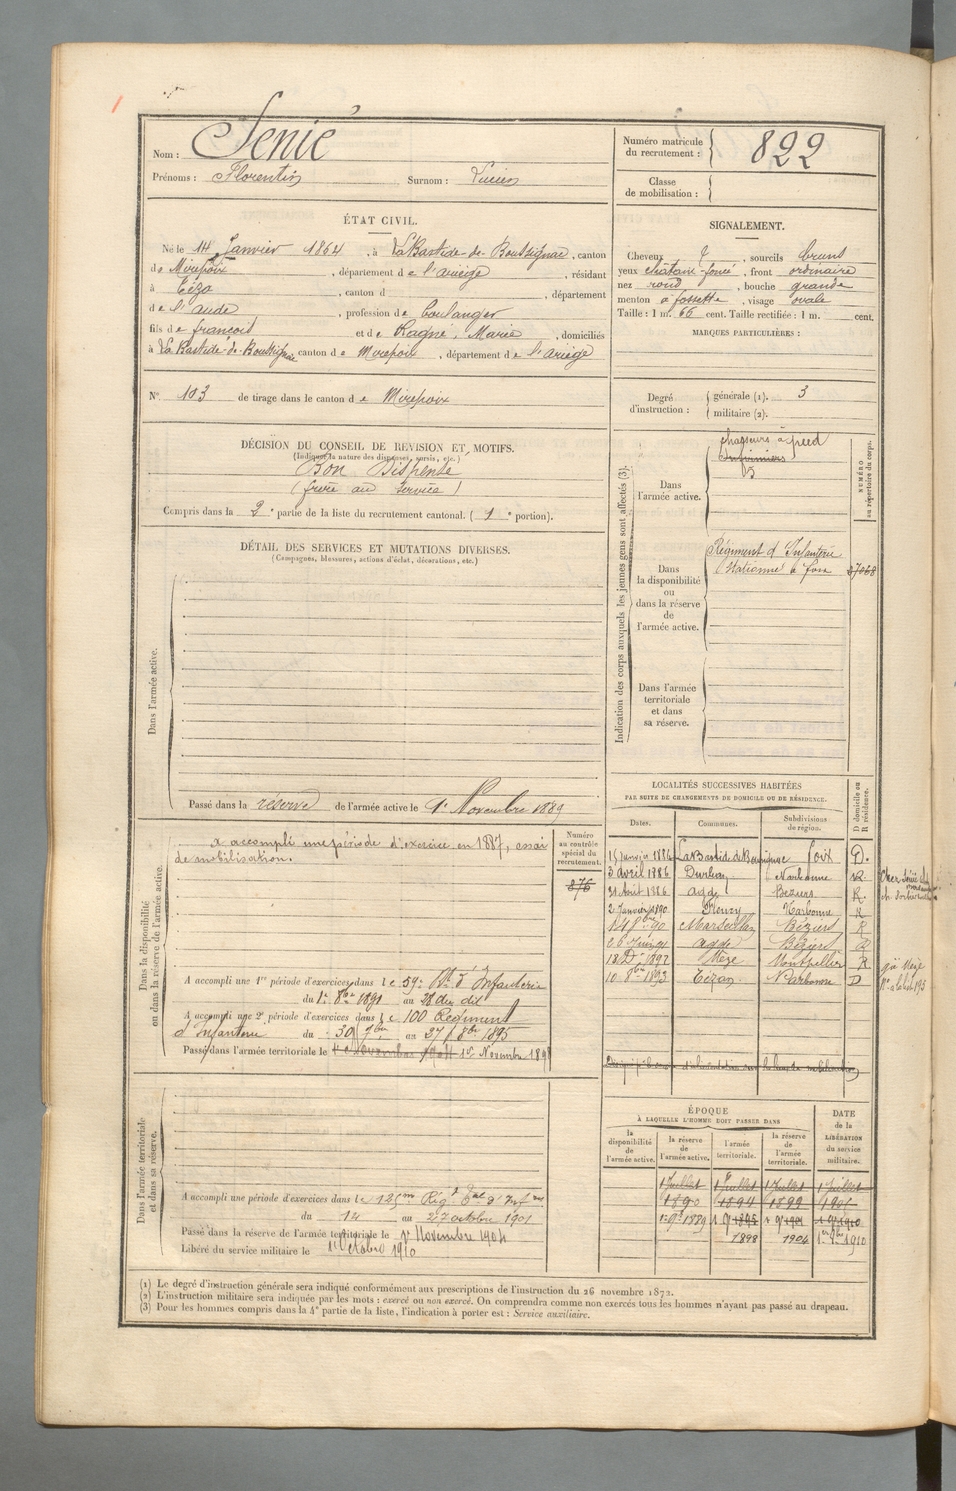 Nom : Senié
Prénoms : Florentin Surnom : Lucien
Numéro matricule du recrutement : 822
Classe de mobilisation :
ÉTAT CIVIL.
Né le 14 Janvier 1864, à La Bastide-de-Bousignac, canton
de Mirepoix, département de l'ariège, résidant
à, canton d, département
de l'aude, profession de boulanger
fils de françois et de Marie, domiciliés
à La Bastide-de-Bousignac canton de Mirepoix, département de l'ariège
SIGNALEMENT.
Cheveux, sourcils bruns
yeux châtain-foncé, front ordinaire
nez rond, bouche grande
menton à fossette, visage ovale
Taille : 1 m. 66 cent. Taille rectifiée : 1 m. cent.
MARQUES PARTICULIÈRES :
N° 103 de tirage dans le canton de Mirepoix
Degré d'instruction : générale (1). 3
militaire (2).
DÉCISION DU CONSEIL DE REVISION ET MOTIFS.
(Indiquer la nature des dispenses, sursis, etc.)
Bon Dispensé
(frère au service)
Compris dans la 2e partie de la liste du recrutement cantonal. (1e portion).
DÉTAIL DES SERVICES ET MUTATIONS DIVERSES.
(Campagnes, blessures, actions d'éclat, décorations, etc.)
Dans l'armée active.
Passé dans la réserve de l'armée active le 1er Novembre 1889
Indication des corps auxquels les jeunes gens sont affectés (3).
NUMÉRO au répertoire du corps.
Dans l'armée active.
chasseurs à pied
Infirmiers
Dans la disponibilité ou dans la réserve de l'armée active.
Régiment d'Infanterie
Stationné à foix
Dans l'armée territoriale et dans sa réserve.
Dans la disponibilité ou dans la réserve de l'armée active.
a accompli une période d'exercice en 1887, essai
de mobilisation.
Numéro au contrôle spécial du recrutement.
876
A accompli une 1re période d'exercices dans le 59e Rt d'Infanterie
du 1er 8bre 1891 au 28 du dit
A accompli une 2e période d'exercices dans le 100 Régiment
d'Infanterie du 30 7bre au 27 8bre 1895
Passé dans l'armée territoriale le 1er Novembre 1898
LOCALITÉS SUCCESSIVES HABITÉES
PAR SUITE DE CHANGEMENTS DE DOMICILE OU DE RÉSIDENCE.
Dates. Communes. Subdivisions de région. D domicile ou R résidence.
15 Janvier 1886 La Bastide de Bousignac foix D.
3 avril 1886 Durban Narbonne R
31 Août 1886 agde Béziers R.
2 Janvier 1890 Fleury Narbonne R
90 Marseillan Béziers R
agde Béziers R
1892 Mèze Montpellier R
10 8bre 1893 Narbonne D
Dans l'armée territoriale et dans sa réserve.
A accompli une période d'exercices dans le 125me Régt tal d'Infie
du 14 au 27 octobre 1901
Passé dans la réserve de l'armée territoriale le 1er Novembre 1904
Libéré du service militaire le 1er Octobre 1910
ÉPOQUE
À LAQUELLE L'HOMME DOIT PASSER DANS
DATE de la LIBÉRATION du service militaire.
la disponibilité de l'armée active. la réserve de l'armée active. l'armée territoriale. la réserve de l'armée territoriale.
1 Juillet 1 Juillet 1 Juillet 1 Juillet
1890 1894 1899
1898 1904 1910
(1) Le degré d'instruction générale sera indiqué conformément aux prescriptions de l'instruction du 26 novembre 1872.
(2) L'instruction militaire sera indiquée par les mots : exercé ou non exercé. On comprendra comme non exercés tous les hommes n'ayant pas passé au drapeau.
(3) Pour les hommes compris dans la 4e partie de la liste, l'indication à porter est : Service auxiliaire.